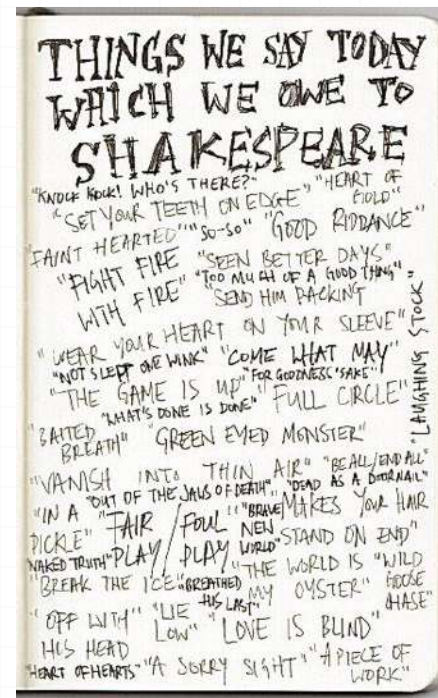 THINGS WE SAY TODAY
WHICH WE OWE TO
SHAKESPEARE
"KNOCK KNOCK! WHO'S THERE?" "HEART OF GOLD"
"SET YOUR TEETH ON EDGE"
"FAINT HEARTED" "SO-SO" "GOOD RIDDANCE"
"FIGHT FIRE WITH FIRE" "SEEN BETTER DAYS"
"TOO MUCH OF A GOOD THING"
"SEND HIM PACKING"
"WEAR YOUR HEART ON YOUR SLEEVE"
"NOT SLEPT ONE WINK" "COME WHAT MAY"
"THE GAME IS UP" "FOR GOODNESS' SAKE"
"WHAT'S DONE IS DONE" "FULL CIRCLE"
"LAUGHING STOCK"
"BAITED BREATH" "GREEN EYED MONSTER"
"VANISH INTO THIN AIR" "BE ALL/END ALL"
"OUT OF THE JAWS OF DEATH" "DEAD AS A DOORNAIL"
"IN A PICKLE" "FAIR PLAY / FOUL PLAY" "BRAVE NEW WORLD" "MAKES YOUR HAIR STAND ON END"
"NAKED TRUTH"
"BREAK THE ICE" "BREATHED HIS LAST" "THE WORLD IS MY OYSTER" "WILD GOOSE CHASE"
"OFF WITH HIS HEAD" "LIE LOW" "LOVE IS BLIND"
"HEART OF HEARTS" "A SORRY SIGHT" "A PIECE OF WORK"